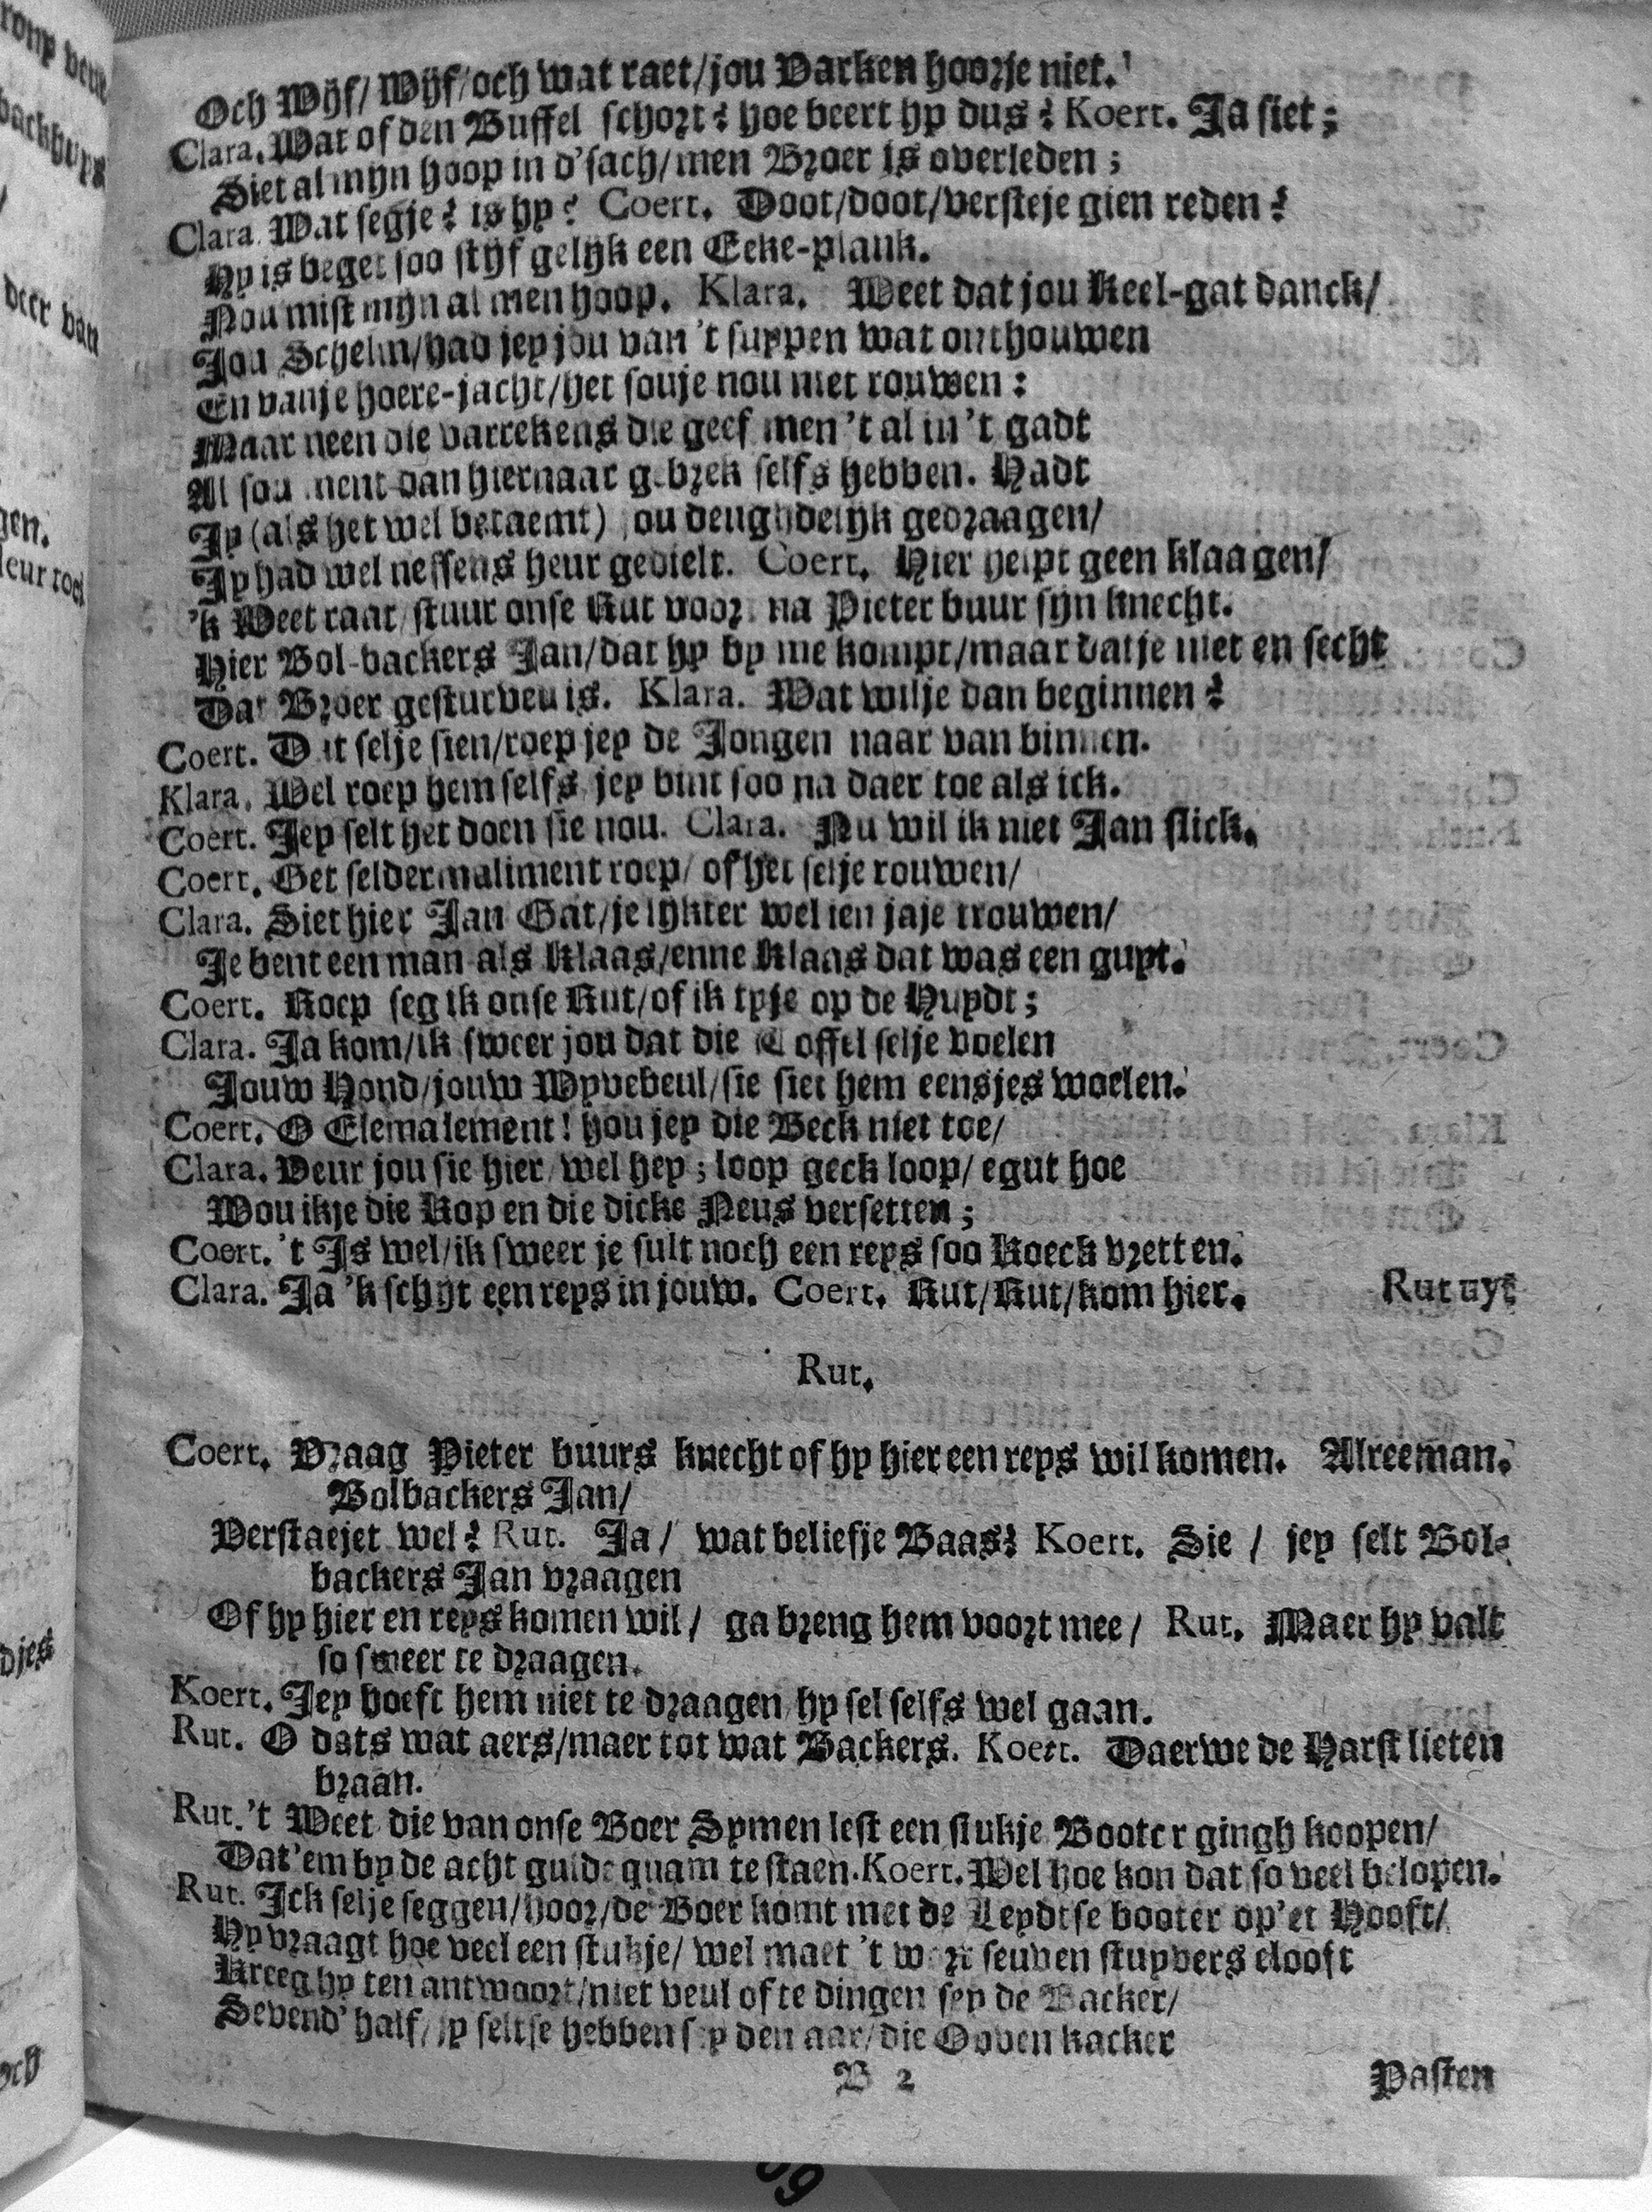 Och Wijf/ Wijf/ och wat raet/ jou Varken hoorje niet.
Clara. Wat of den Buffel schort? hoe beert hy dus? Koert. Ja siet;
Siet al mijn hoop in d'sach/ men Broer is overleden;
Clara. Wat segje? is hy? Coert. Doot/doot/versteje gien reden?
Hy is beget soo stijf gelijk een Eeke-plank.
Nou mist mijn al men hoop. Klara. Weet dat jou Keel-gat danck/
Jou Schelm/had jey jou van 't suypen wat onthouwen
En van je hoere-jacht/het souje nou niet rouwen:
Maar neen die varrekens die geef men 't al in 't gadt
Al sou ment dan hiernaar gebrek selfs hebben. Hadt
Jy (als het wel betaemt) jou deughdelijk gedraagen/
Jy had wel neffens heur gedielt. Coert. Hier helpt geen klaagen/
'k Weet raat/ stuur onse Rut voor na Pieter buur sijn knecht.
Hier Bol-backers Jan/dat hy by me kompt/maar datje niet en secht
Dat Broer gesturven is. Klara. Wat wilje dan beginnen?
Coert. Dit selje sien/roep jey de Jongen naar van binnen.
Klara. Wel roep hem selfs jey bint soo na daer toe als ick.
Coert. Jey selt het doen sie nou. Clara. Nu wil ik niet Jan slick.
Coert. Get seldermaliment roep/ of het selje rouwen/
Clara. Siet hier Jan Gat/je lijkter wel ien jaje trouwen/
Je bent een man als Klaas/enne Klaas dat was een guyt.
Coert. Roep seg ik onse Rut/of ik tyje op de Huydt;
Clara. Ja kom/ik sweer jou dat die Toffel selje voelen
Jouw Hond/jouw Wyvebeul/sie siet hem eensjes woelen.
Coert. O Elemalement! hou jey die Beck niet toe/
Clara. Veur jou sie hier wel hey; loop geck loop/ egut hoe
Wou ikje die Kop en die dicke Neus versetten;
Coert. 't Is wel/ik sweer je sult noch een reys soo Koeck vretten.
Clara. Ja 'k schijt een reys in jouw. Coert. Rut/Rut/kom hier. Rut uyt
Rut.
Coert. Vraag Pieter buurs knecht of hy hier een reys wil komen. Alreeman.
Bolbackers Jan/
Verstaejet wel? Rut. Ja/ wat beliefje Baas? Koert. Sie / jey selt Bol-
backers Jan vraagen
Of hy hier en reys komen wil/ ga breng hem voort mee/ Rut. Maer hy valt
so sweer te draagen.
Koert. Jey hoeft hem niet te draagen hy sel selfs wel gaan.
Rut. O dats wat aers/maer tot wat Backers. Koert. Daerwe de Harst lieten
braan.
Rut. 't Weet die van onse Boer Symen lest een stukje Booter gingh koopen/
Dat'em by de acht gulde quam te staen. Koert. Wel hoe kon dat so veel belopen.
Rut. Ick selje seggen/hoor/de Boer komt met de Leydtse booter op'et Hooft/
Hy vraagt hoe veel een stukje/ wel maet 't wort seuven stuyvers elooft
Kreeg hy ten antwoort/niet veul of te dingen sey de Backer/
Sevend' half/jy seltse hebben sey den aar/die Ooven kacker
B 2 Pasten